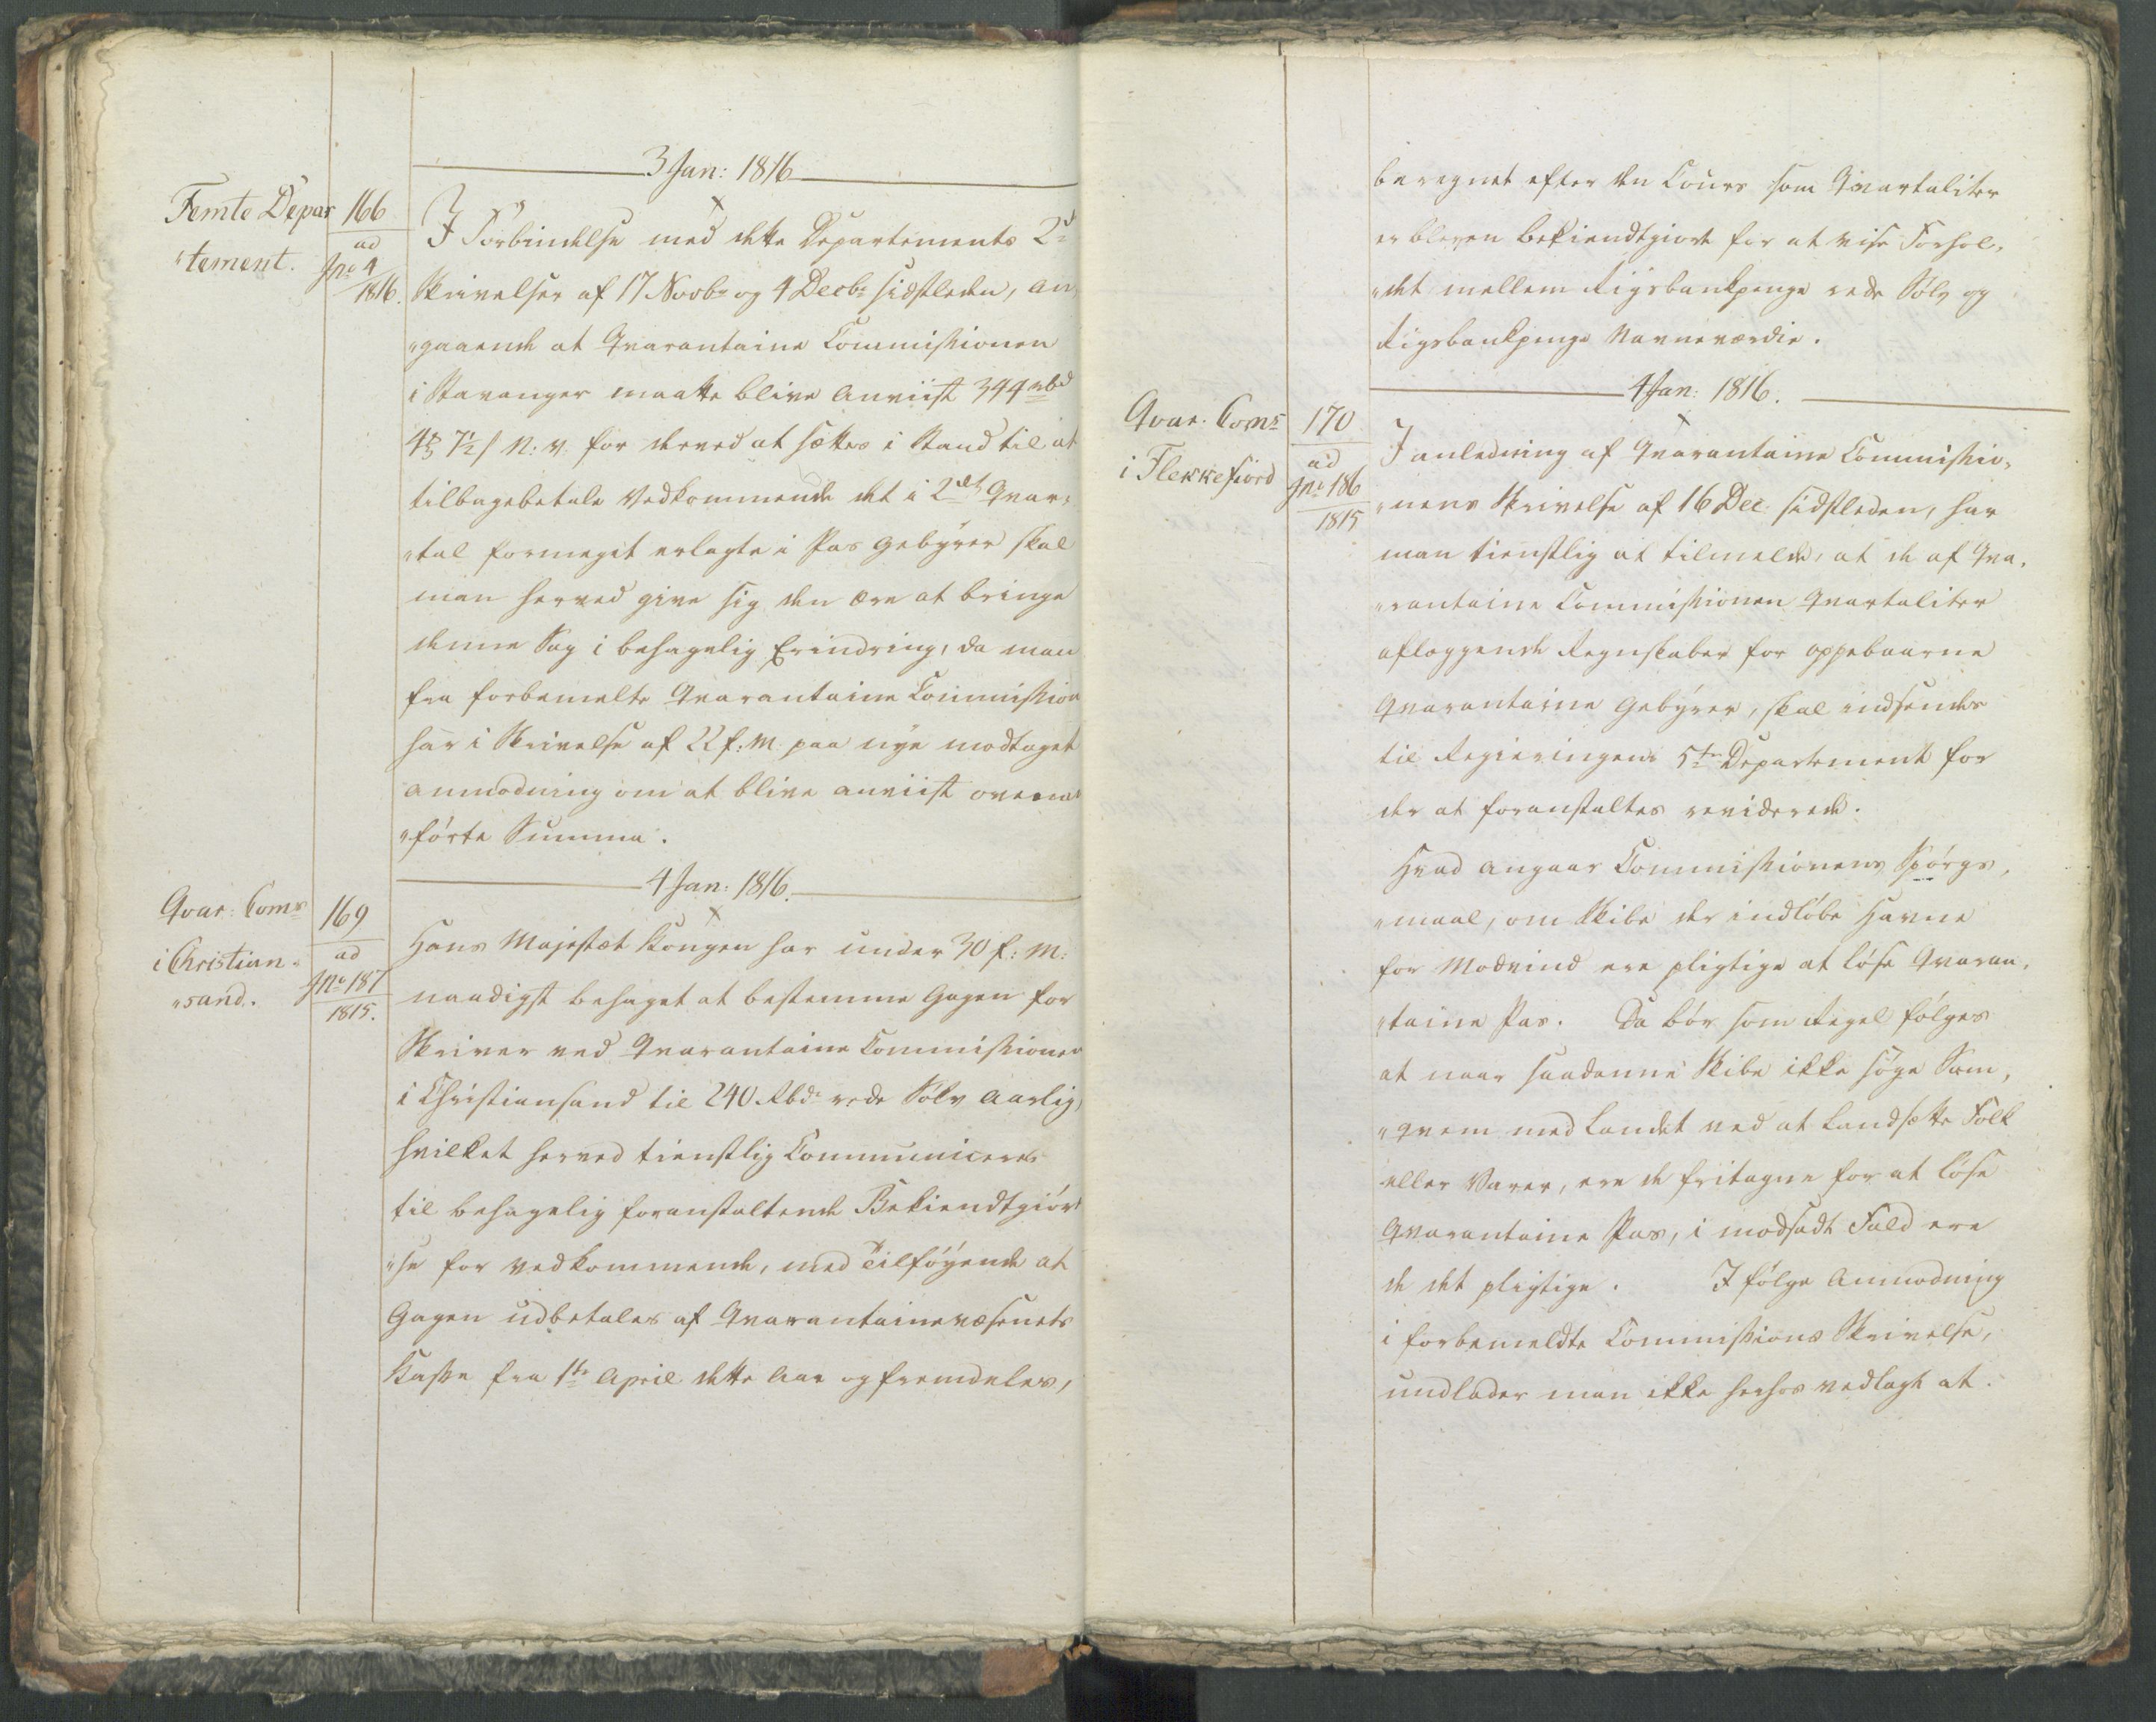 3 Jan: 1816
Femte Depar
„tement.
166
ad
Jno 4
1816.
I Forbindelse med dette Departements 2de
Skrivelser af 17 Novbr og 4 Decbr sidstleden, an„
„gaaende at Qvarantaine Commissionen
i Stavanger maatte blive anviist 344 rbd
4 ₥ 7½ s N: V: for derved at sættes i Stand til at
tilbagebetale Vedkommende det i 2det Qvar„
„tal formeget erlagte i Pas Gebyrer skal
man herved give sig den Ære at bringe
denne Sag i behagelig Erindring, da man
fra forbemelte Qvarantaine Commission
har i Skrivelse af 22 f: M: paa nye modtaget
Anmodning om at blive anviist ovenan
„førte Summa.
4 Jan: 1816.
Qvar: Coms
i Christian„
„sand.
169
ad
Jno 187
1815.
Hans Majestæt Kongen har under 30 f: M:
naadigst behaget at bestemme Gagen for
Skriver ved Qvarantaine Commissionen
i Christiansand til 240 Rbdr rede Sølv aarlig,
hvilket herved tienstlig Communiceres
til behagelig foranstaltende Bekiendtgiørel
„se for vedkommende, med Tilføyende at
Gagen udbetales af Qvarantainevæsenets
Kasse fra 1te April dette Aar og fremdeles,
beregnet efter den Cours som Qvartaliter
er bleven bekiendtgiort for at vise Forhol„
„det mellem Rigsbankpenge rede Sølv og
Rigsbankpenge Navneværdie.
4 Jan: 1816.
Qvar. Coms
i Flekkefiord
170
ad
Jno 186
1815
I anledning af Qvarantaine Commissio„
„nens Skrivelse af 16 Dec: sidstleden, har
man tienstlig at tilmelde, at de af Qva„
„rantaine Commissionen Qvartaliter
aflæggende Regnskaber for oppebaarne
Qvarantaine Gebyrer, skal indsendes
til Regieringens 5te Departement for
der at foranstaltes reviderede.
Hvad angaar Commissionens Spørgs„
„maal, om Skibe der indløbe Havne
for Modvind ere pligtige at løse Qvaran„
„taine Pas. Da bør som Regel følges
at naar saadanne Skibe ikke søge Sam„
„qvem med Landet ved at Landsætte Folk
eller Varer, ere de fritagne for at løse
Qvarantaine Pas, i modsadt Fald ere
de det pligtige. I følge Anmodning
i forbemeldte Commissions Skrivelse,
undlader man ikke herhos vedlagt at